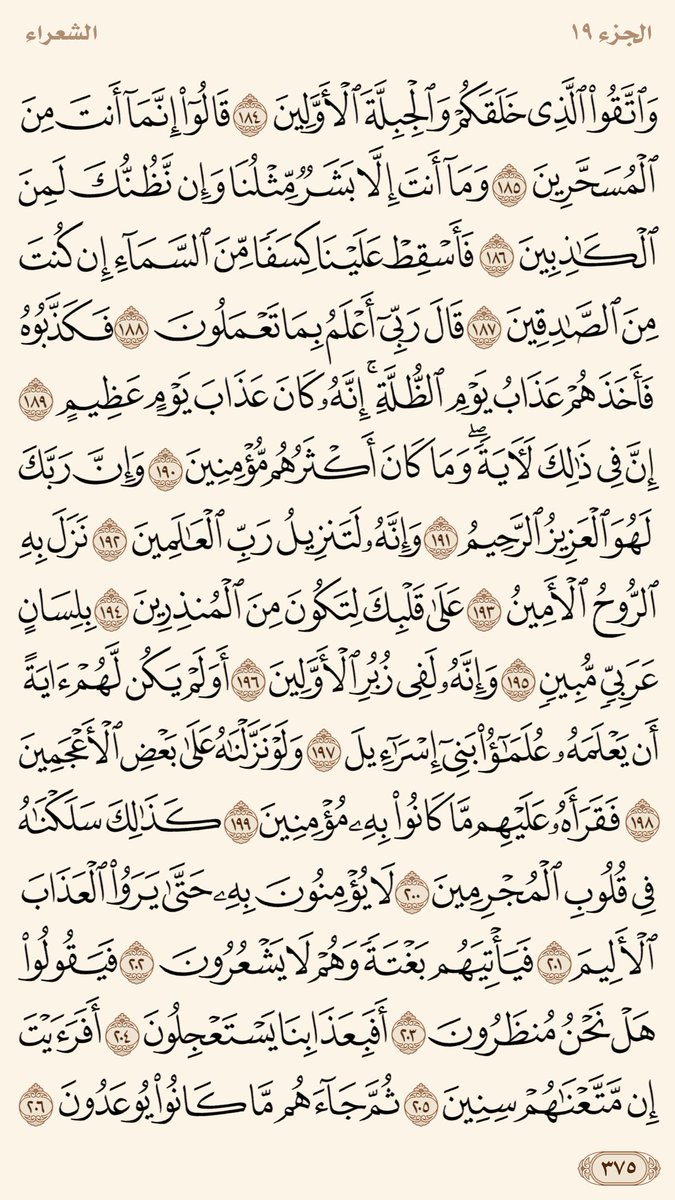 الجزء ١٩
الشعراء
وَٱتَّقُوا۟ ٱلَّذِى خَلَقَكُمْ وَٱلْجِبِلَّةَ ٱلْأَوَّلِينَ ١٨٤ قَالُوٓا۟ إِنَّمَآ أَنتَ مِنَ
ٱلْمُسَحَّرِينَ ١٨٥ وَمَآ أَنتَ إِلَّا بَشَرٌ مِّثْلُنَا وَإِن نَّظُنُّكَ لَمِنَ
ٱلْكَـٰذِبِينَ ١٨٦ فَأَسْقِطْ عَلَيْنَا كِسَفًا مِّنَ ٱلسَّمَآءِ إِن كُنتَ
مِنَ ٱلصَّـٰدِقِينَ ١٨٧ قَالَ رَبِّىٓ أَعْلَمُ بِمَا تَعْمَلُونَ ١٨٨ فَكَذَّبُوهُ
فَأَخَذَهُمْ عَذَابُ يَوْمِ ٱلظُّلَّةِ ۚ إِنَّهُۥ كَانَ عَذَابَ يَوْمٍ عَظِيمٍ ١٨٩
إِنَّ فِى ذَٰلِكَ لَـَٔايَةً ۖ وَمَا كَانَ أَكْثَرُهُم مُّؤْمِنِينَ ١٩٠ وَإِنَّ رَبَّكَ
لَهُوَ ٱلْعَزِيزُ ٱلرَّحِيمُ ١٩١ وَإِنَّهُۥ لَتَنزِيلُ رَبِّ ٱلْعَـٰلَمِينَ ١٩٢ نَزَلَ بِهِ
ٱلرُّوحُ ٱلْأَمِينُ ١٩٣ عَلَىٰ قَلْبِكَ لِتَكُونَ مِنَ ٱلْمُنذِرِينَ ١٩٤ بِلِسَانٍ
عَرَبِىٍّ مُّبِينٍ ١٩٥ وَإِنَّهُۥ لَفِى زُبُرِ ٱلْأَوَّلِينَ ١٩٦ أَوَلَمْ يَكُن لَّهُمْ ءَايَةً
أَن يَعْلَمَهُۥ عُلَمَـٰٓؤُا۟ بَنِىٓ إِسْرَٰٓءِيلَ ١٩٧ وَلَوْ نَزَّلْنَـٰهُ عَلَىٰ بَعْضِ ٱلْأَعْجَمِينَ
١٩٨ فَقَرَأَهُۥ عَلَيْهِم مَّا كَانُوا۟ بِهِۦ مُؤْمِنِينَ ١٩٩ كَذَٰلِكَ سَلَكْنَـٰهُ
فِى قُلُوبِ ٱلْمُجْرِمِينَ ٢٠٠ لَا يُؤْمِنُونَ بِهِۦ حَتَّىٰ يَرَوُا۟ ٱلْعَذَابَ
ٱلْأَلِيمَ ٢٠١ فَيَأْتِيَهُم بَغْتَةً وَهُمْ لَا يَشْعُرُونَ ٢٠٢ فَيَقُولُوا۟
هَلْ نَحْنُ مُنظَرُونَ ٢٠٣ أَفَبِعَذَابِنَا يَسْتَعْجِلُونَ ٢٠٤ أَفَرَءَيْتَ
إِن مَّتَّعْنَـٰهُمْ سِنِينَ ٢٠٥ ثُمَّ جَآءَهُم مَّا كَانُوا۟ يُوعَدُونَ ٢٠٦
٣٧٥